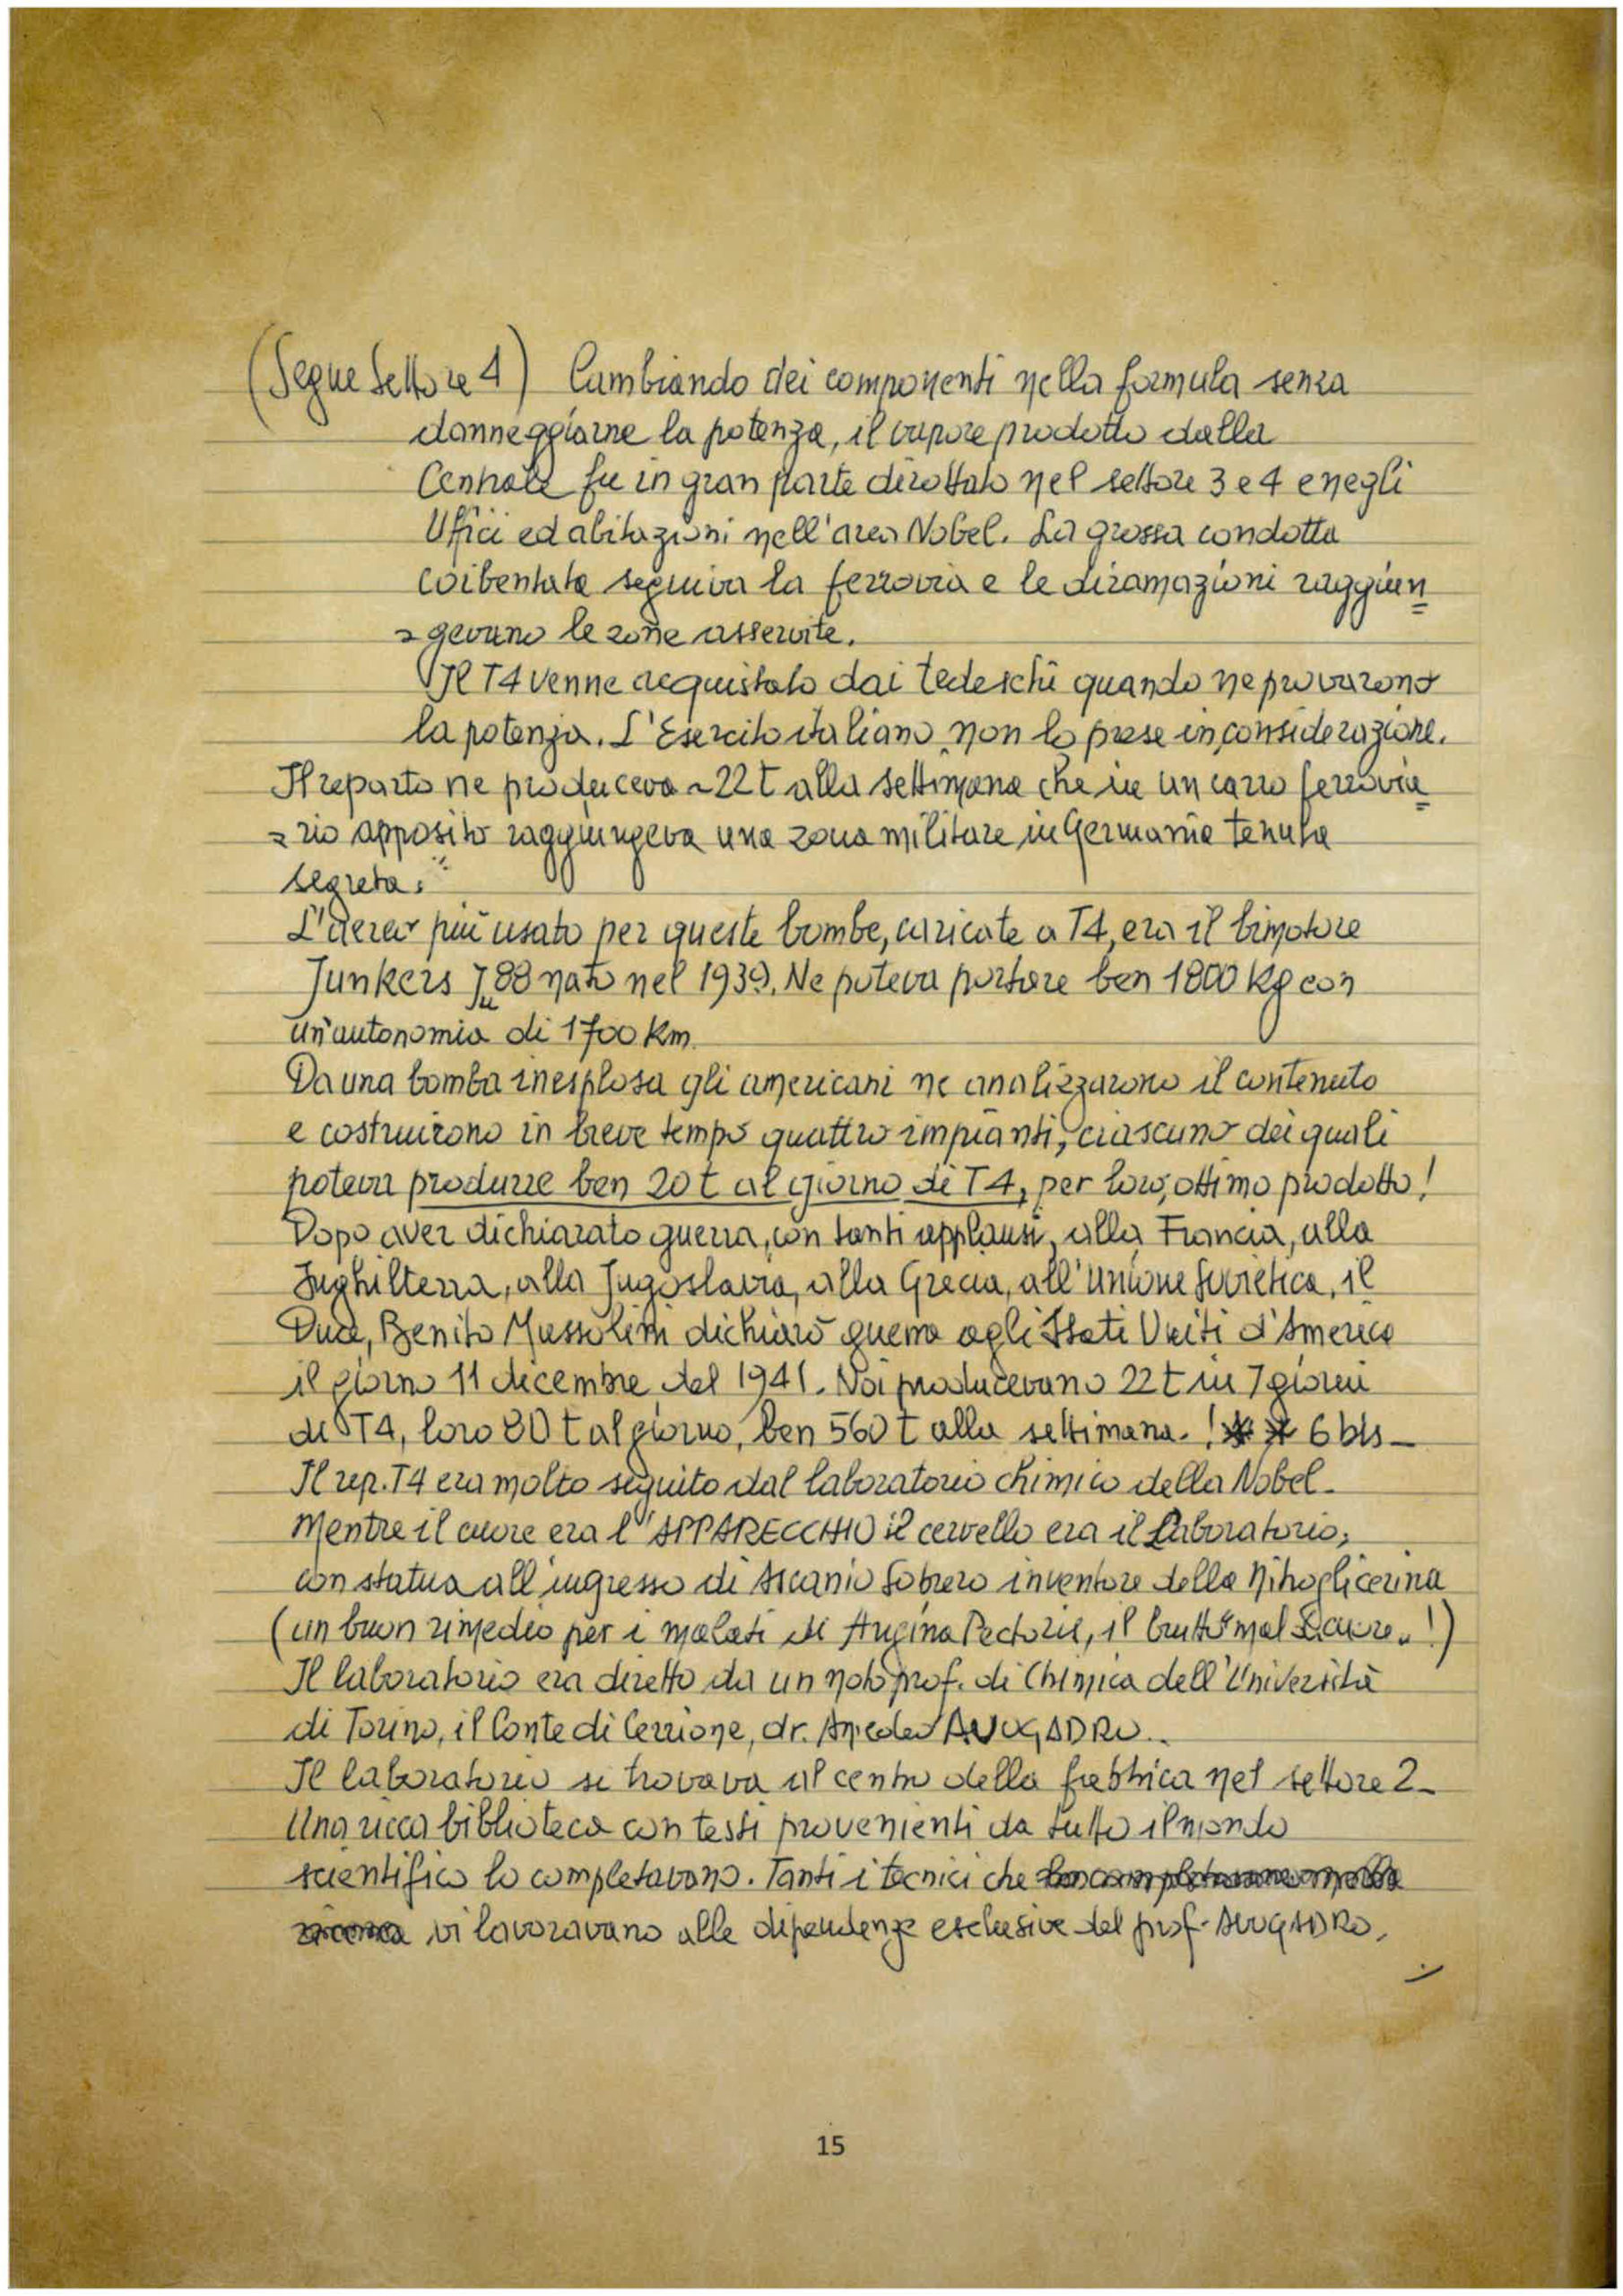 (Segue Settore 4) Cambiando dei componenti nella formula senza
danneggiarne la potenza, il vapore prodotto dalla
Centrale fu in gran parte dirottato nel settore 3 e 4 e negli
Uffici ed abitazioni nell'area Nobel. La grossa condotta
coibentata seguiva la ferrovia e le diramazioni raggiun
= gevano le zone asservite.
Il T4 venne acquistato dai tedeschi quando ne provarono
la potenza. L'Esercito italiano non lo prese in considerazione.
Il reparto ne produceva ~22 t alla settimana che in un carro ferrovia
= rio apposito raggiungeva una zona militare in Germania tenuta
segreta.
L'aereo più usato per queste bombe, caricate a T4, era il bimotore
Junkers Ju 88 nato nel 1939. Ne poteva portare ben 1800 Kg con
un'autonomia di 1700 Km.
Da una bomba inesplosa gli americani ne analizzarono il contenuto
e costruirono in breve tempo quattro impianti, ciascuno dei quali
poteva produrre ben 20 t al giorno di T4, per loro, ottimo prodotto!
Dopo aver dichiarato guerra, con tanti applausi, alla Francia, alla
Inghilterra, alla Jugoslavia, alla Grecia, all'Unione Sovietica, il
Duce, Benito Mussolini dichiarò guerra agli Stati Uniti d'America
il giorno 11 dicembre del 1941. Noi producevano 22 t in 7 giorni
di T4, loro 80 t al giorno, ben 560 t alla settimana. ! * * 6 bis -
Il rep. T4 era molto seguito dal laboratorio chimico della Nobel.
Mentre il cuore era l'"APPARECCHIO il cervello era il Laboratorio,
con statua all'ingresso di Ascanio Sobrero inventore della Nitroglicerina
(un buon rimedio per i malati di Angina Pectoris, il brutto mal cuore..!)
Il laboratorio era diretto da un noto prof. di Chimica dell'Università
di Torino, il Conte di Cerrione, dr. Amedeo AVOGADRO..
Il laboratorio si trovava al centro della fabbrica nel settore 2-
Una ricca biblioteca con testi provenienti da tutto il mondo
scientifico lo completavano. Tanti i tecnici che
vi lavoravano alle dipendenze esclusive del prof. AVOGADRO.
15